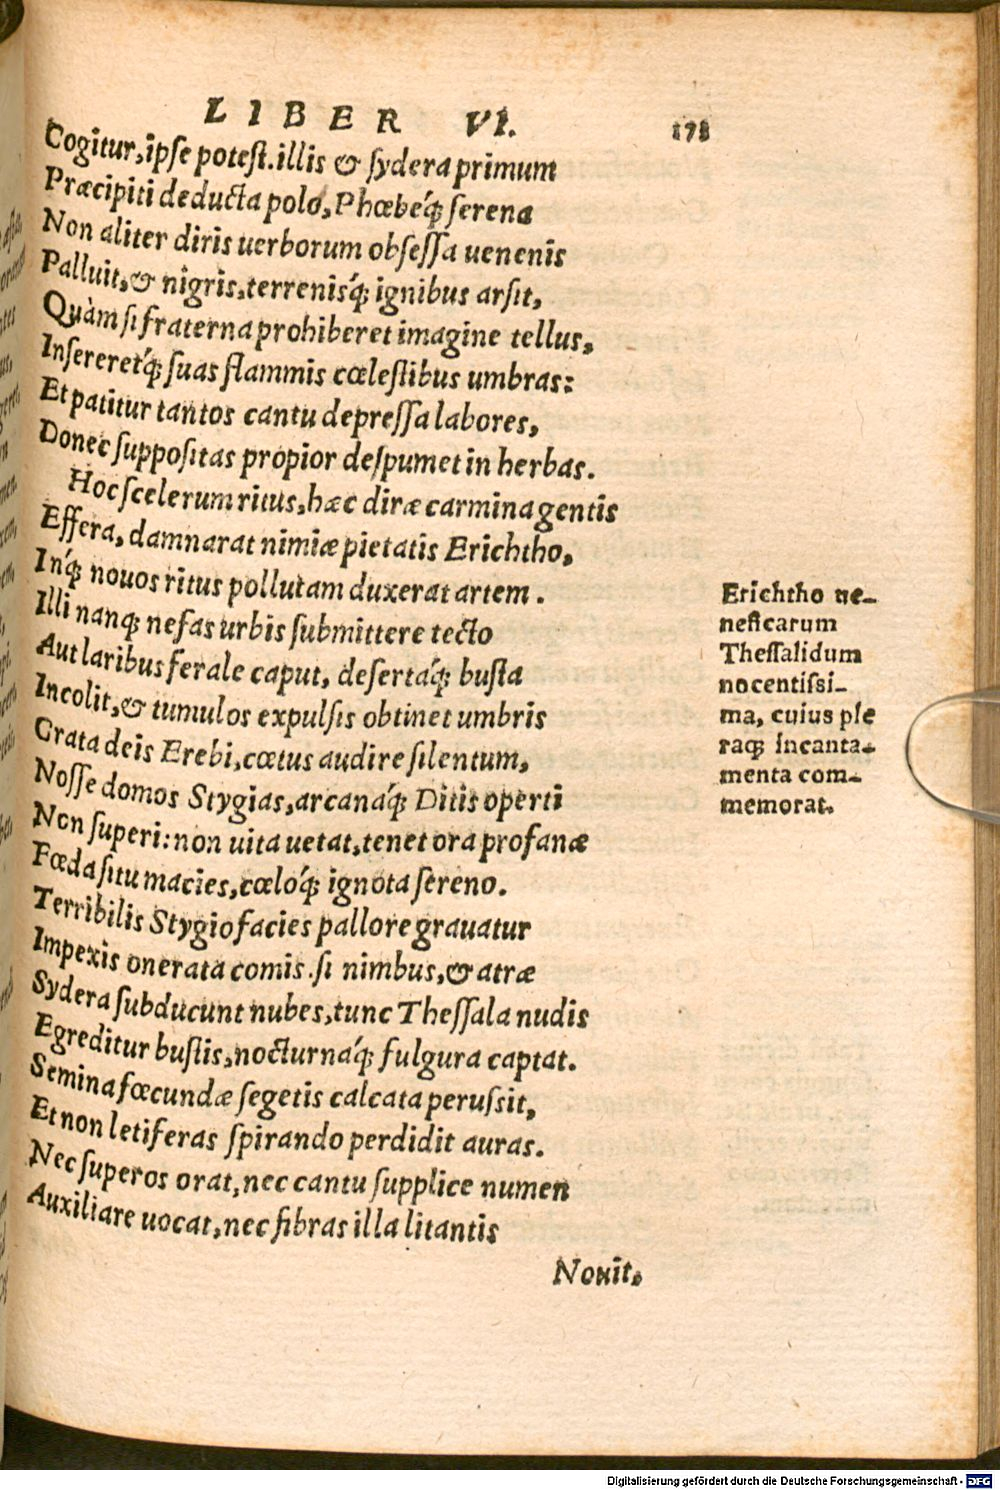 LIBER VI. 178
Cogitur, ipse potest. illis & sydera primum
Præcipiti deducta polo, Phœbeq́; serena
Non aliter diris uerborum obsessa uenenis
Palluit, & nigris, terrenisq́; ignibus arsit,
Quàm si fraterna prohiberet imagine tellus,
Insereretq́; suas flammis cœlestibus umbras:
Et patitur tantos cantu depressa labores,
Donec suppositas propior despumet in herbas.
Hoc scelerum ritus, hæc diræ carmina gentis
Effera, damnarat nimiæ pietatis Erichtho,
Inq́; nouos ritus pollutam duxerat artem.
Illi nanq; nefas urbis submittere tecto
Aut laribus ferale caput, desertaq́; busta
Incolit, & tumulos expulsis obtinet umbris
Grata deis Erebi, cœtus audire silentum,
Nosse domos Stygias, arcanaq́; Ditis operti
Non superi: non uita uetat, tenet ora profanæ
Fœda situ macies, cœloq́; ignota sereno.
Terribilis Stygio facies pallore grauatur
Impexis onerata comis. si nimbus, & atræ
Sydera subducunt nubes, tunc Thessala nudis
Egreditur bustis, nocturnaq́; fulgura captat.
Semina fœcundæ segetis calcata perussit,
Et non letiferas spirando perdidit auras.
Nec superos orat, nec cantu supplice numen
Auxiliare uocat, nec fibras illa litantis
Nouit.
Erichtho ue-
neficarum
Thessalidum
nocentissi-
ma, cuius ple
raq; incanta-
menta com-
memorat.
Digitalisierung gefördert durch die Deutsche Forschungsgemeinschaft - DFG